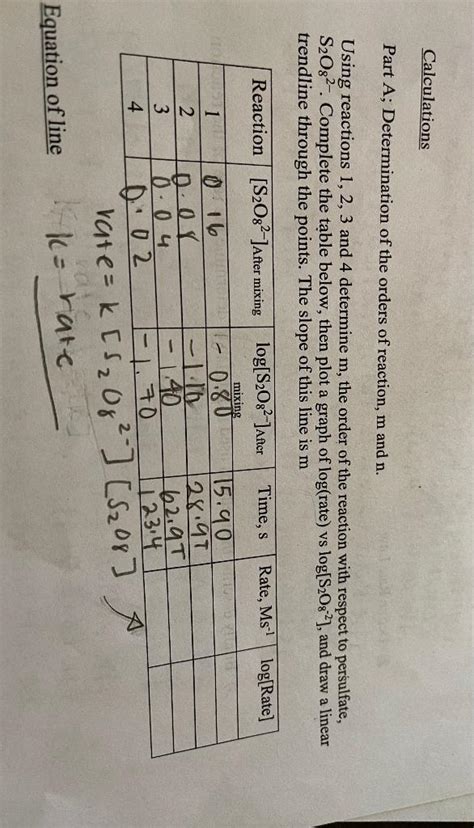 Calculations
Part A; Determination of the orders of reaction, m and n.
Using reactions 1, 2, 3 and 4 determine m, the order of the reaction with respect to persulfate,
S₂O₈²⁻. Complete the table below, then plot a graph of log(rate) vs log[S₂O₈⁻²], and draw a linear
trendline through the points. The slope of this line is m
Reaction [S₂O₈²⁻]After mixing log[S₂O₈²⁻]After mixing Time, s Rate, Ms⁻¹ log[Rate]
1 0.16 -0.80 15.90
2 0.08 -1.10 28.97
3 0.04 -1.40 62.97
4 0.02 -1.70 123.4
rate = k [S₂O₈²⁻] [S₂O₈]
Equation of line
k = rate